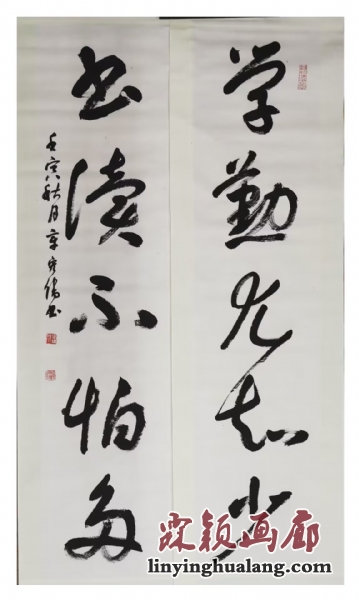 学勤尤知少
书读不怕多
壬寅秋月
霖颖画廊
linyinghualang.com